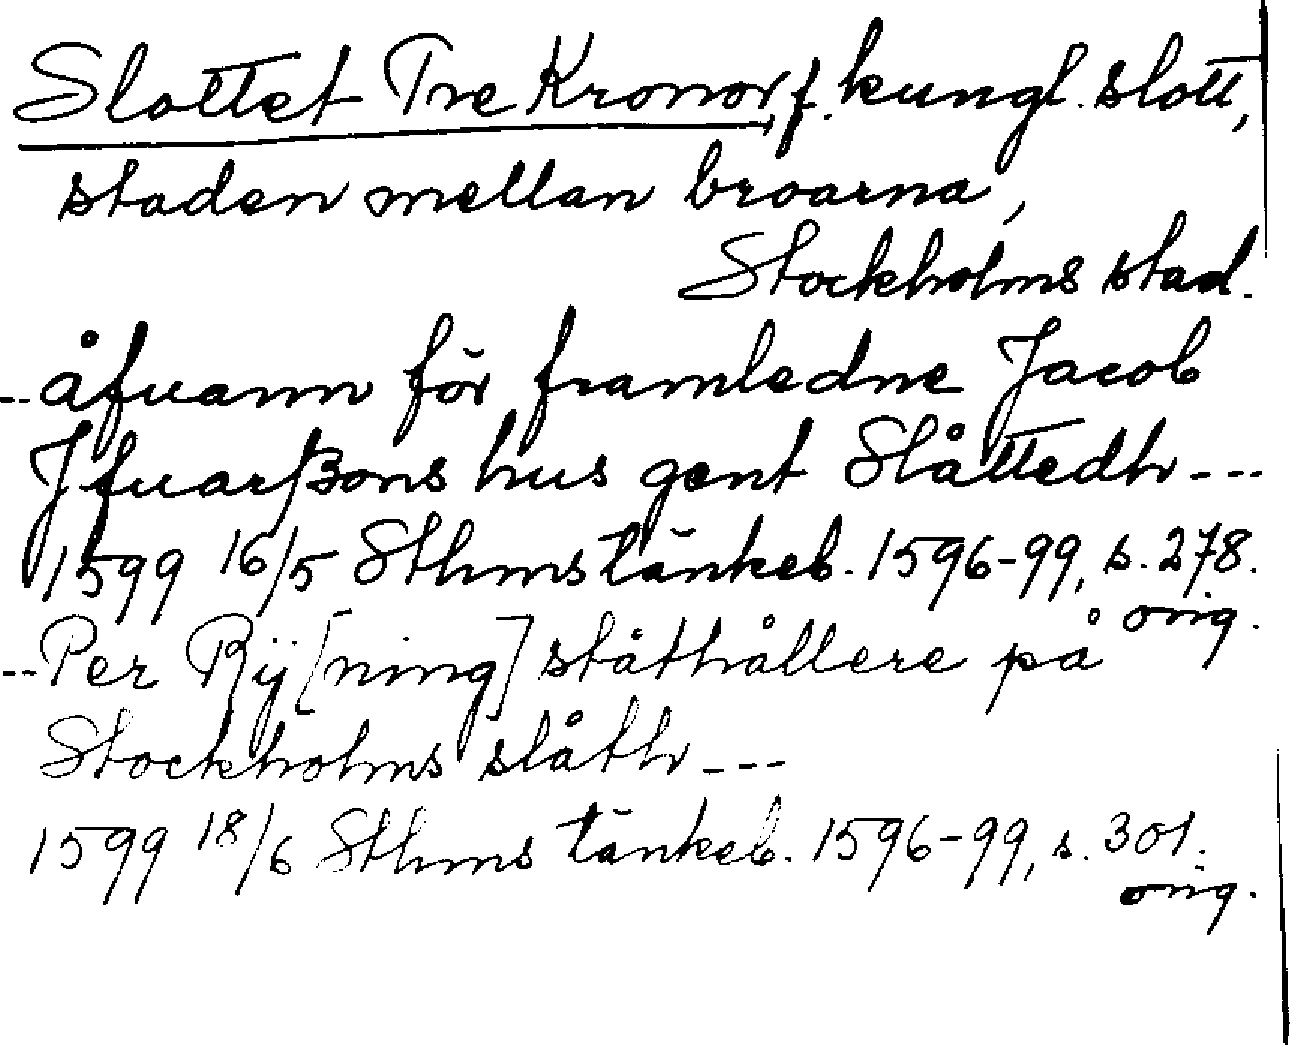 Slottet Tre Kronor, f. kungl. slott,
staden mellan broarna,
Stockholms stad.
--åfuann för framledne Jacob
Jfuarßons hus gent Slåttedh ---
1599 16/5 Sthms tänkeb. 1596-99, s. 278.
orig.
--Per Rÿ[ning] ståthållere på
Stockholms slåth ---
1599 18/6 Sthms tänkeb. 1596-99, s. 301.
orig.